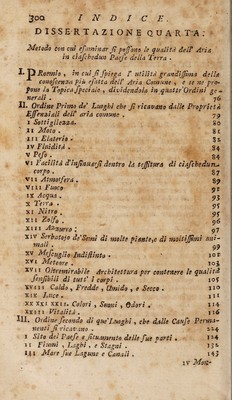 300 INDICE.
DISSERTAZIONE QUARTA.
Metodo con cui esaminar si possino le qualità dell' Aria
in ciascheduno Paese della Terra.
I. PRoemio, in cui si spiega l'utilità grandissima della
conoscenza più esatta dell' Aria Comune, e se ne pro-
pone la Topica speciale, dividendola in quattr' Ordini ge-
nerali. 76
II. Ordine Primo de' Luoghi che si ricavano dalle Proprietà
Essenziali dell' aria comune, 79
I Sottigliezza. 80
II Moto. 81
III Elaterio. 82
IV Fluidità. 84
V Peso. 84
VI Facilità d'insinuarsi dentro la tessitura di ciaschedun
corpo. 87
VII Atmosfera. 87
VIII Fuoco 92
IX Acqua. 93
X Terra. 95
XI Nitro. 95
XII Zolfo. 96
XIII Azzurro. 97
XIV Serbatojo de' Semi di molte piante, e di moltissimi ani-
mali. 99
XV Mescuglio Indistinto. 101
XVI Meteore. 103
XVII Oltremirabile Architettura per contenere le qualità
sensibili di tutt' i corpi. 105
XVIII Caldo, Freddo, Umido, e Secco 110
XIX Luce. 111
XX XXI XXII. Colori, Suoni, Odori 114
XXIII Vitalità. 116
III. Ordine secondo di que' Luoghi, che dalle Cause Perma-
nenti si ricavano. 124
I Sito del Paese e situamento delle sue parti. 124
II Fiumi, Laghi, e Stagni. 136
III Mare sue Lagune e Canali. 143
IV Mon-